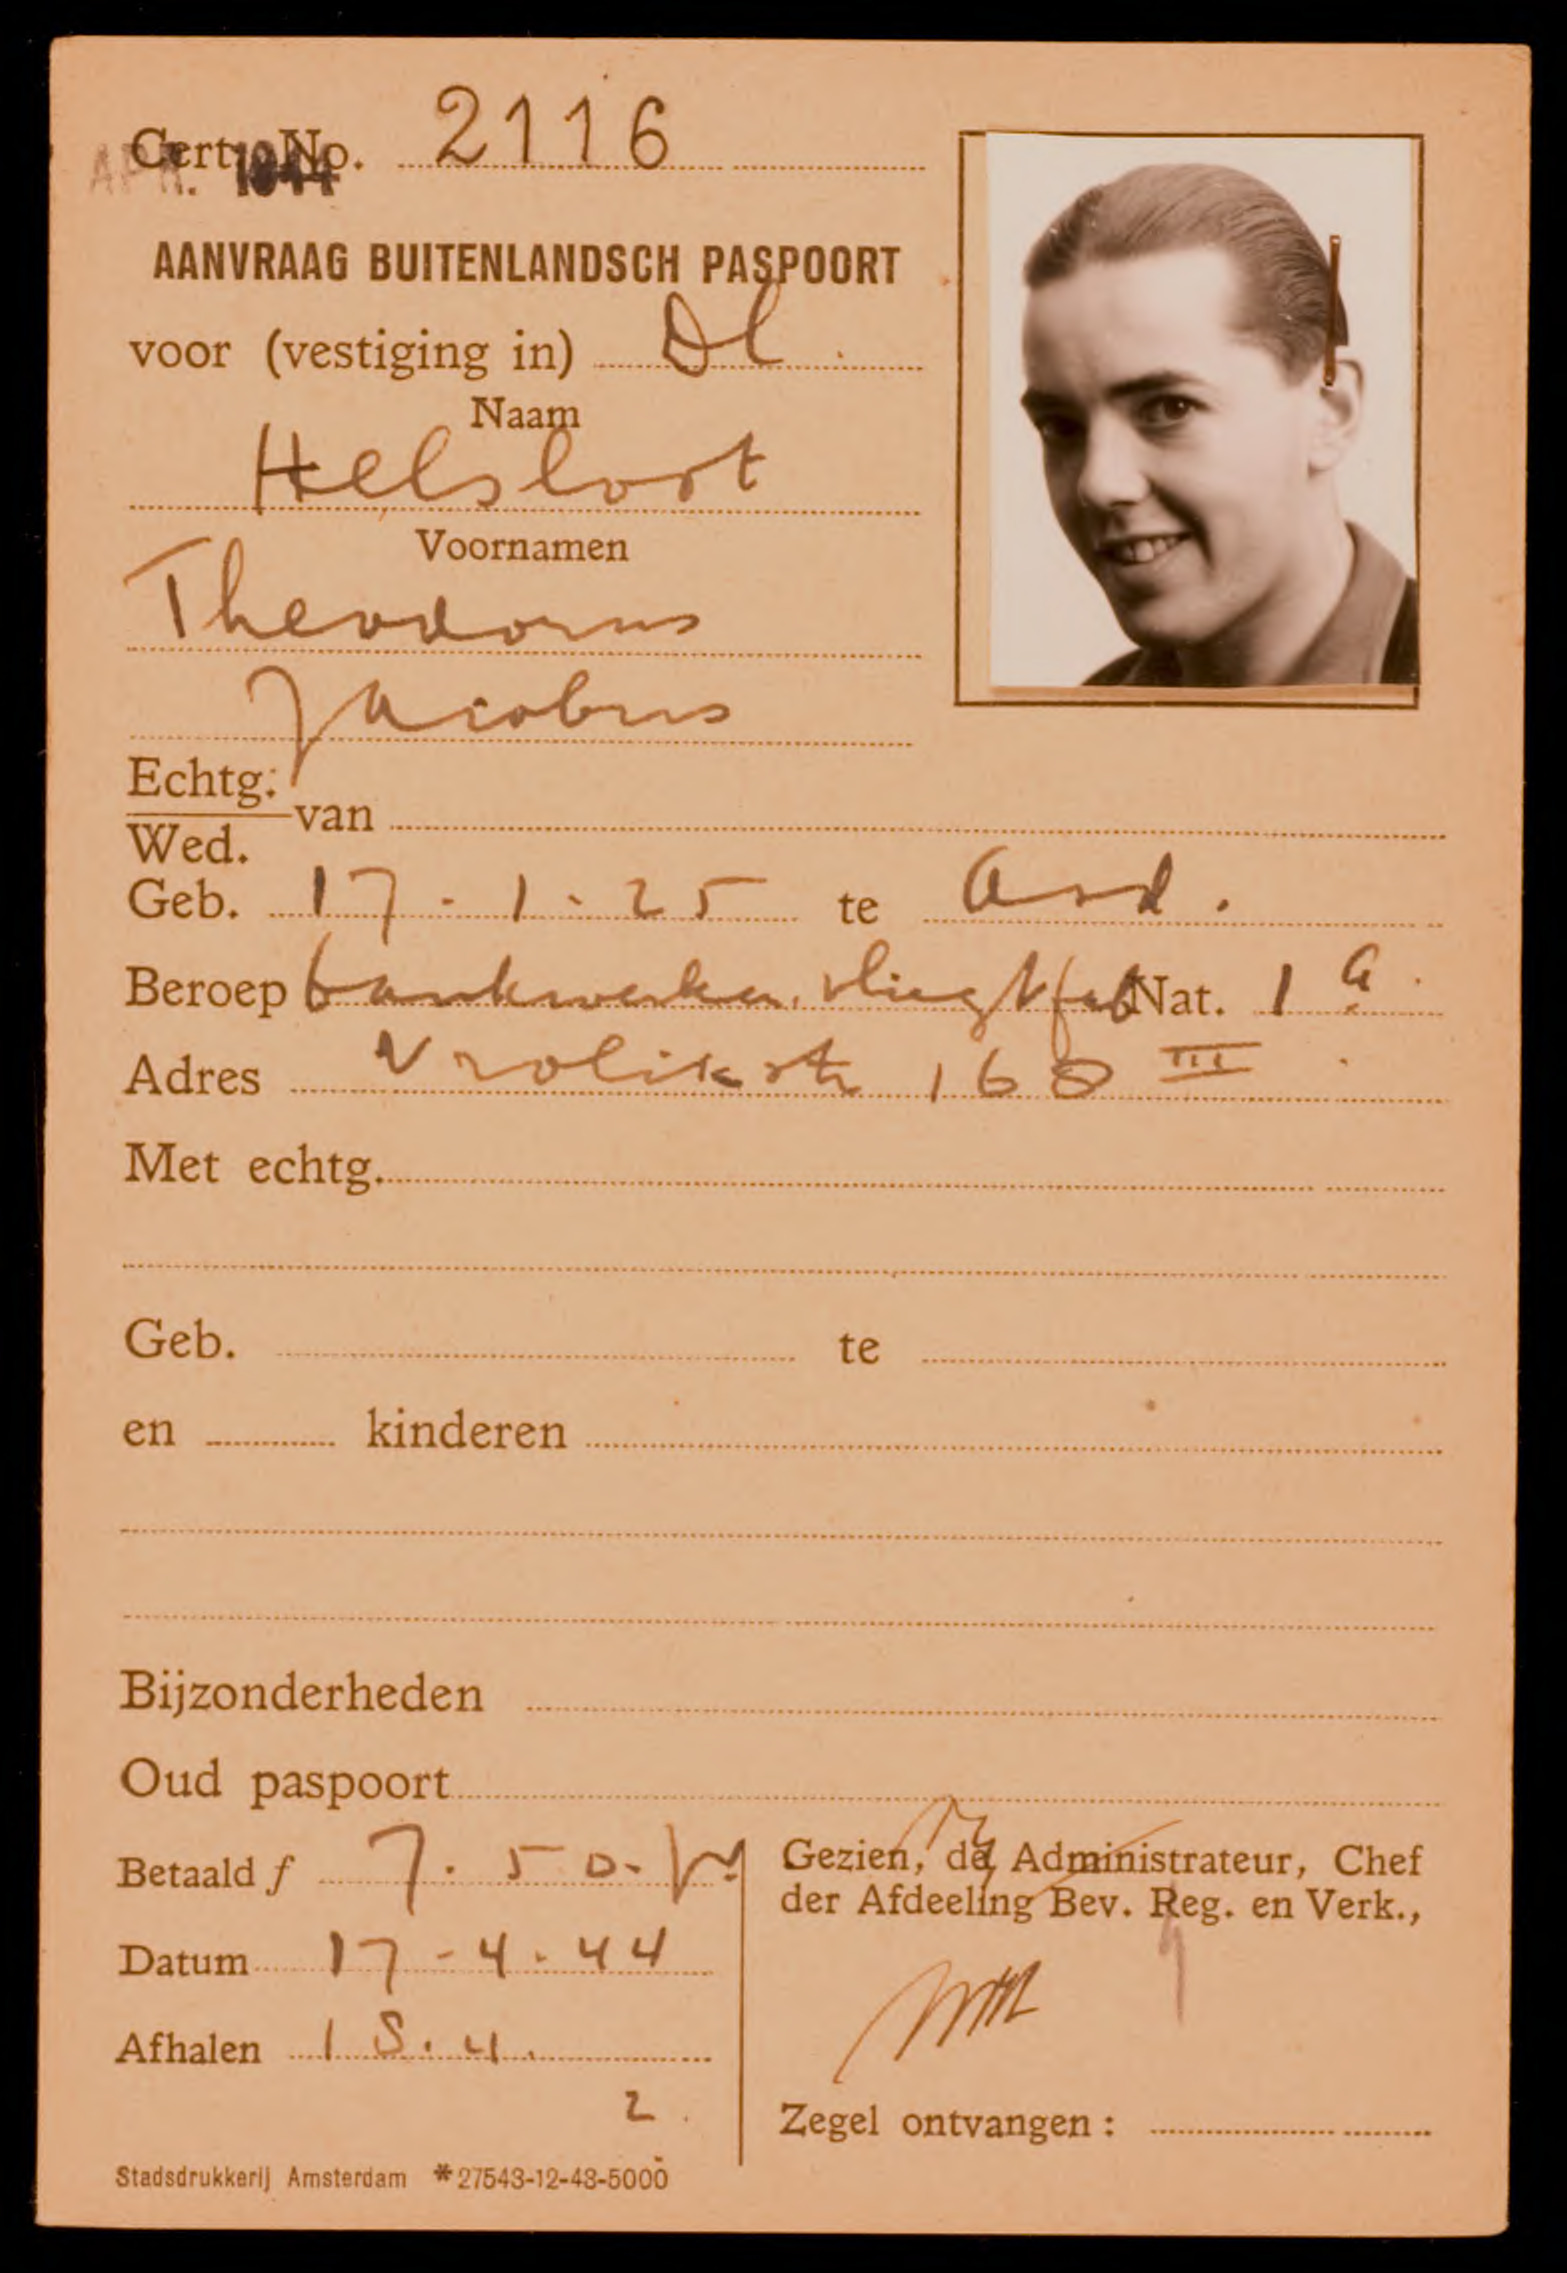 Cert. No. 2116
APR. 1944
AANVRAAG BUITENLANDSCH PASPOORT
voor (vestiging in) Dl.
Naam
Helsloot
Voornamen
Theodorus
Jacobus
Echtg.
Wed. van
Geb. 17-1-25 te Asd.
Beroep bankwerker. vliegt fab Nat. 1a.
Adres Vrolikstr 160 III
Met echtg.
Geb. te
en kinderen
Bijzonderheden
Oud paspoort
Betaald f 7.50.
Datum 17-4-44
Afhalen 18.4.
2.
Gezien, de Administrateur, Chef
der Afdeeling Bev. Reg. en Verk.,
Zegel ontvangen:
Stadsdrukkerij Amsterdam *27543-12-43-5000